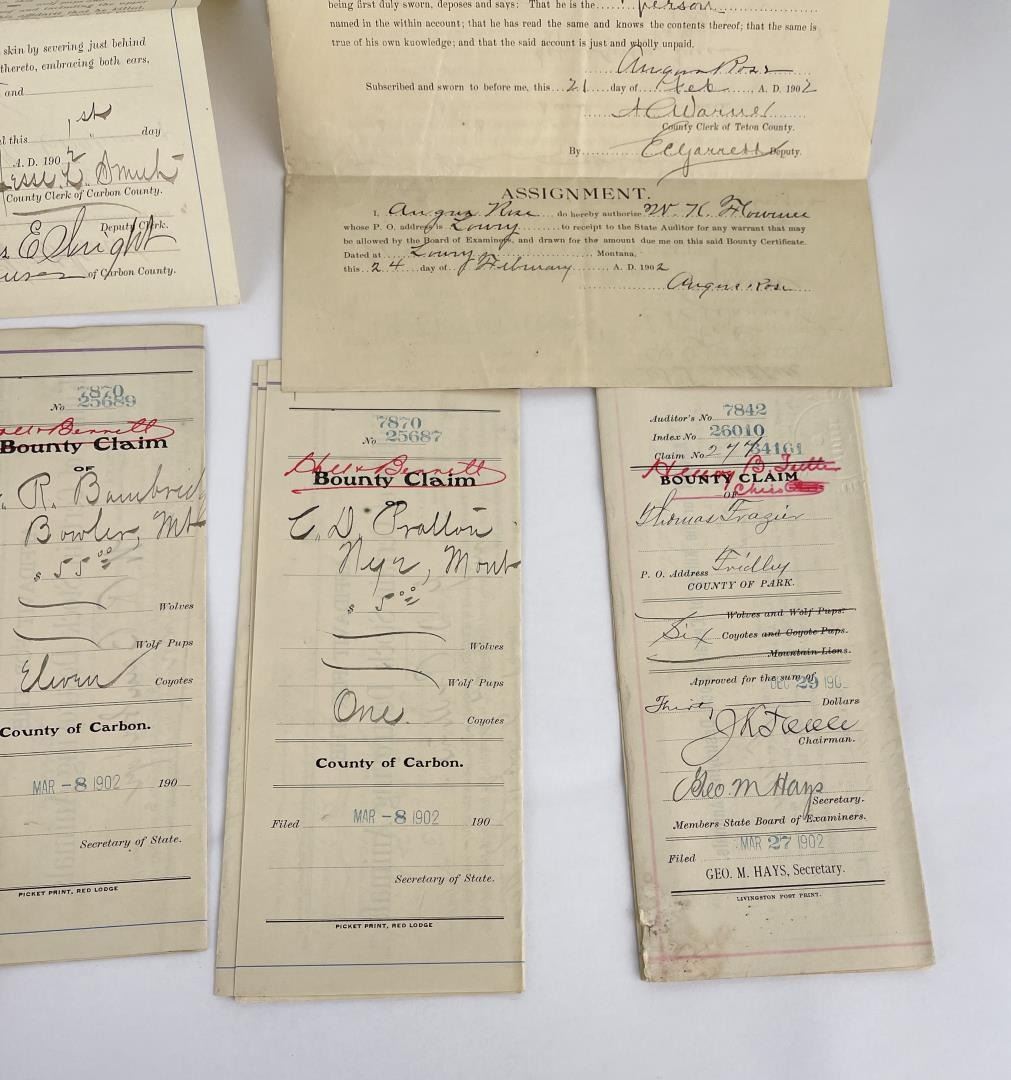 skin by severing just behind
thereto, embracing both ears,
and
al this 1st day
A. D. 1902
Jesse L. Smith
County Clerk of Carbon County.
Deputy Clerk.
of Carbon County.
being first duly sworn, deposes and says: That he is the person
named in the within account; that he has read the same and knows the contents thereof; that the same is
true of his own knowledge; and that the said account is just and wholly unpaid.
Angus Rose
Subscribed and sworn to before me, this 21 day of Feb, A. D. 1902
A C Warner
County Clerk of Teton County.
By E C Garrett Deputy.
ASSIGNMENT.
I, Angus Rose do hereby authorise W. K. Flowerree
whose P. O. address is Lowry to receipt to the State Auditor for any warrant that may
be allowed by the Board of Examiners, and drawn for the amount due me on this said Bounty Certificate.
Dated at Lowry Montana,
this 24 day of February A. D. 1902
Angus Rose
7870
No 25689
Bennett
Bounty Claim
OF
R. Bambridg
Bowler, Mt
$ 55.00
Wolves
Wolf Pups
Eleven Coyotes
County of Carbon.
MAR -8 1902 190
Secretary of State.
PICKET PRINT, RED LODGE
7870
No 25687
Hall & Bennett
Bounty Claim
OF
C. D. Pratton
Nye, Mont
$ 5.00
Wolves
Wolf Pups
One. Coyotes
County of Carbon.
Filed MAR -8 1902 190
Secretary of State.
PICKET PRINT, RED LODGE
Auditor's No 7842
Index No 26010
Claim No 277 34161
Henry B.
BOUNTY CLAIM
OF
Thomas Frazier
P. O. Address Fridley
COUNTY OF PARK.
Wolves and Wolf Pups.
Six Coyotes and Coyote Pups.
Mountain Lions.
Approved for the sum of DEC 29 190
Thirty Dollars
Chairman.
Geo. M Hays
Secretary.
Members State Board of Examiners.
Filed MAR 27 1902
GEO. M. HAYS, Secretary.
LIVINGSTON POST PRINT.